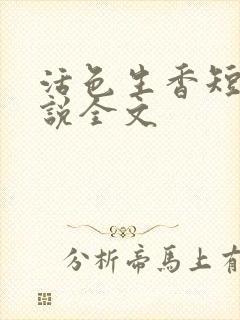 活色生香短
說全文
分析帝馬上有